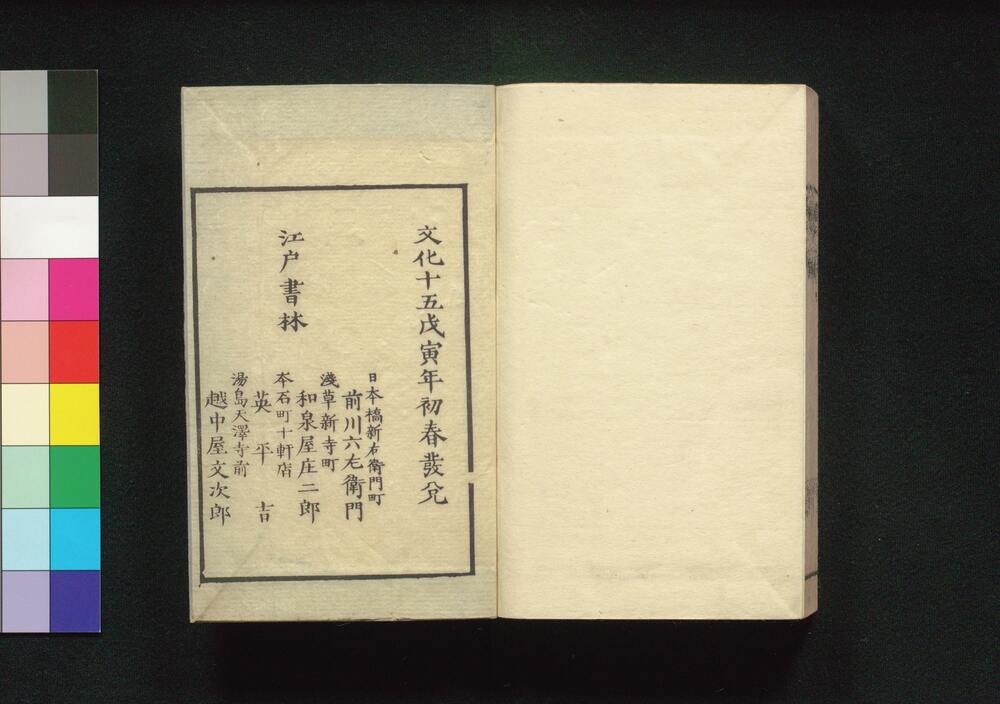 文化十五戊寅年初春發兌
江戸書林
日本橋新右衛門町
前川六左衛門
淺草新寺町
和泉屋庄二郎
本石町十軒店
英平吉
湯島天澤寺前
越中屋文次郎